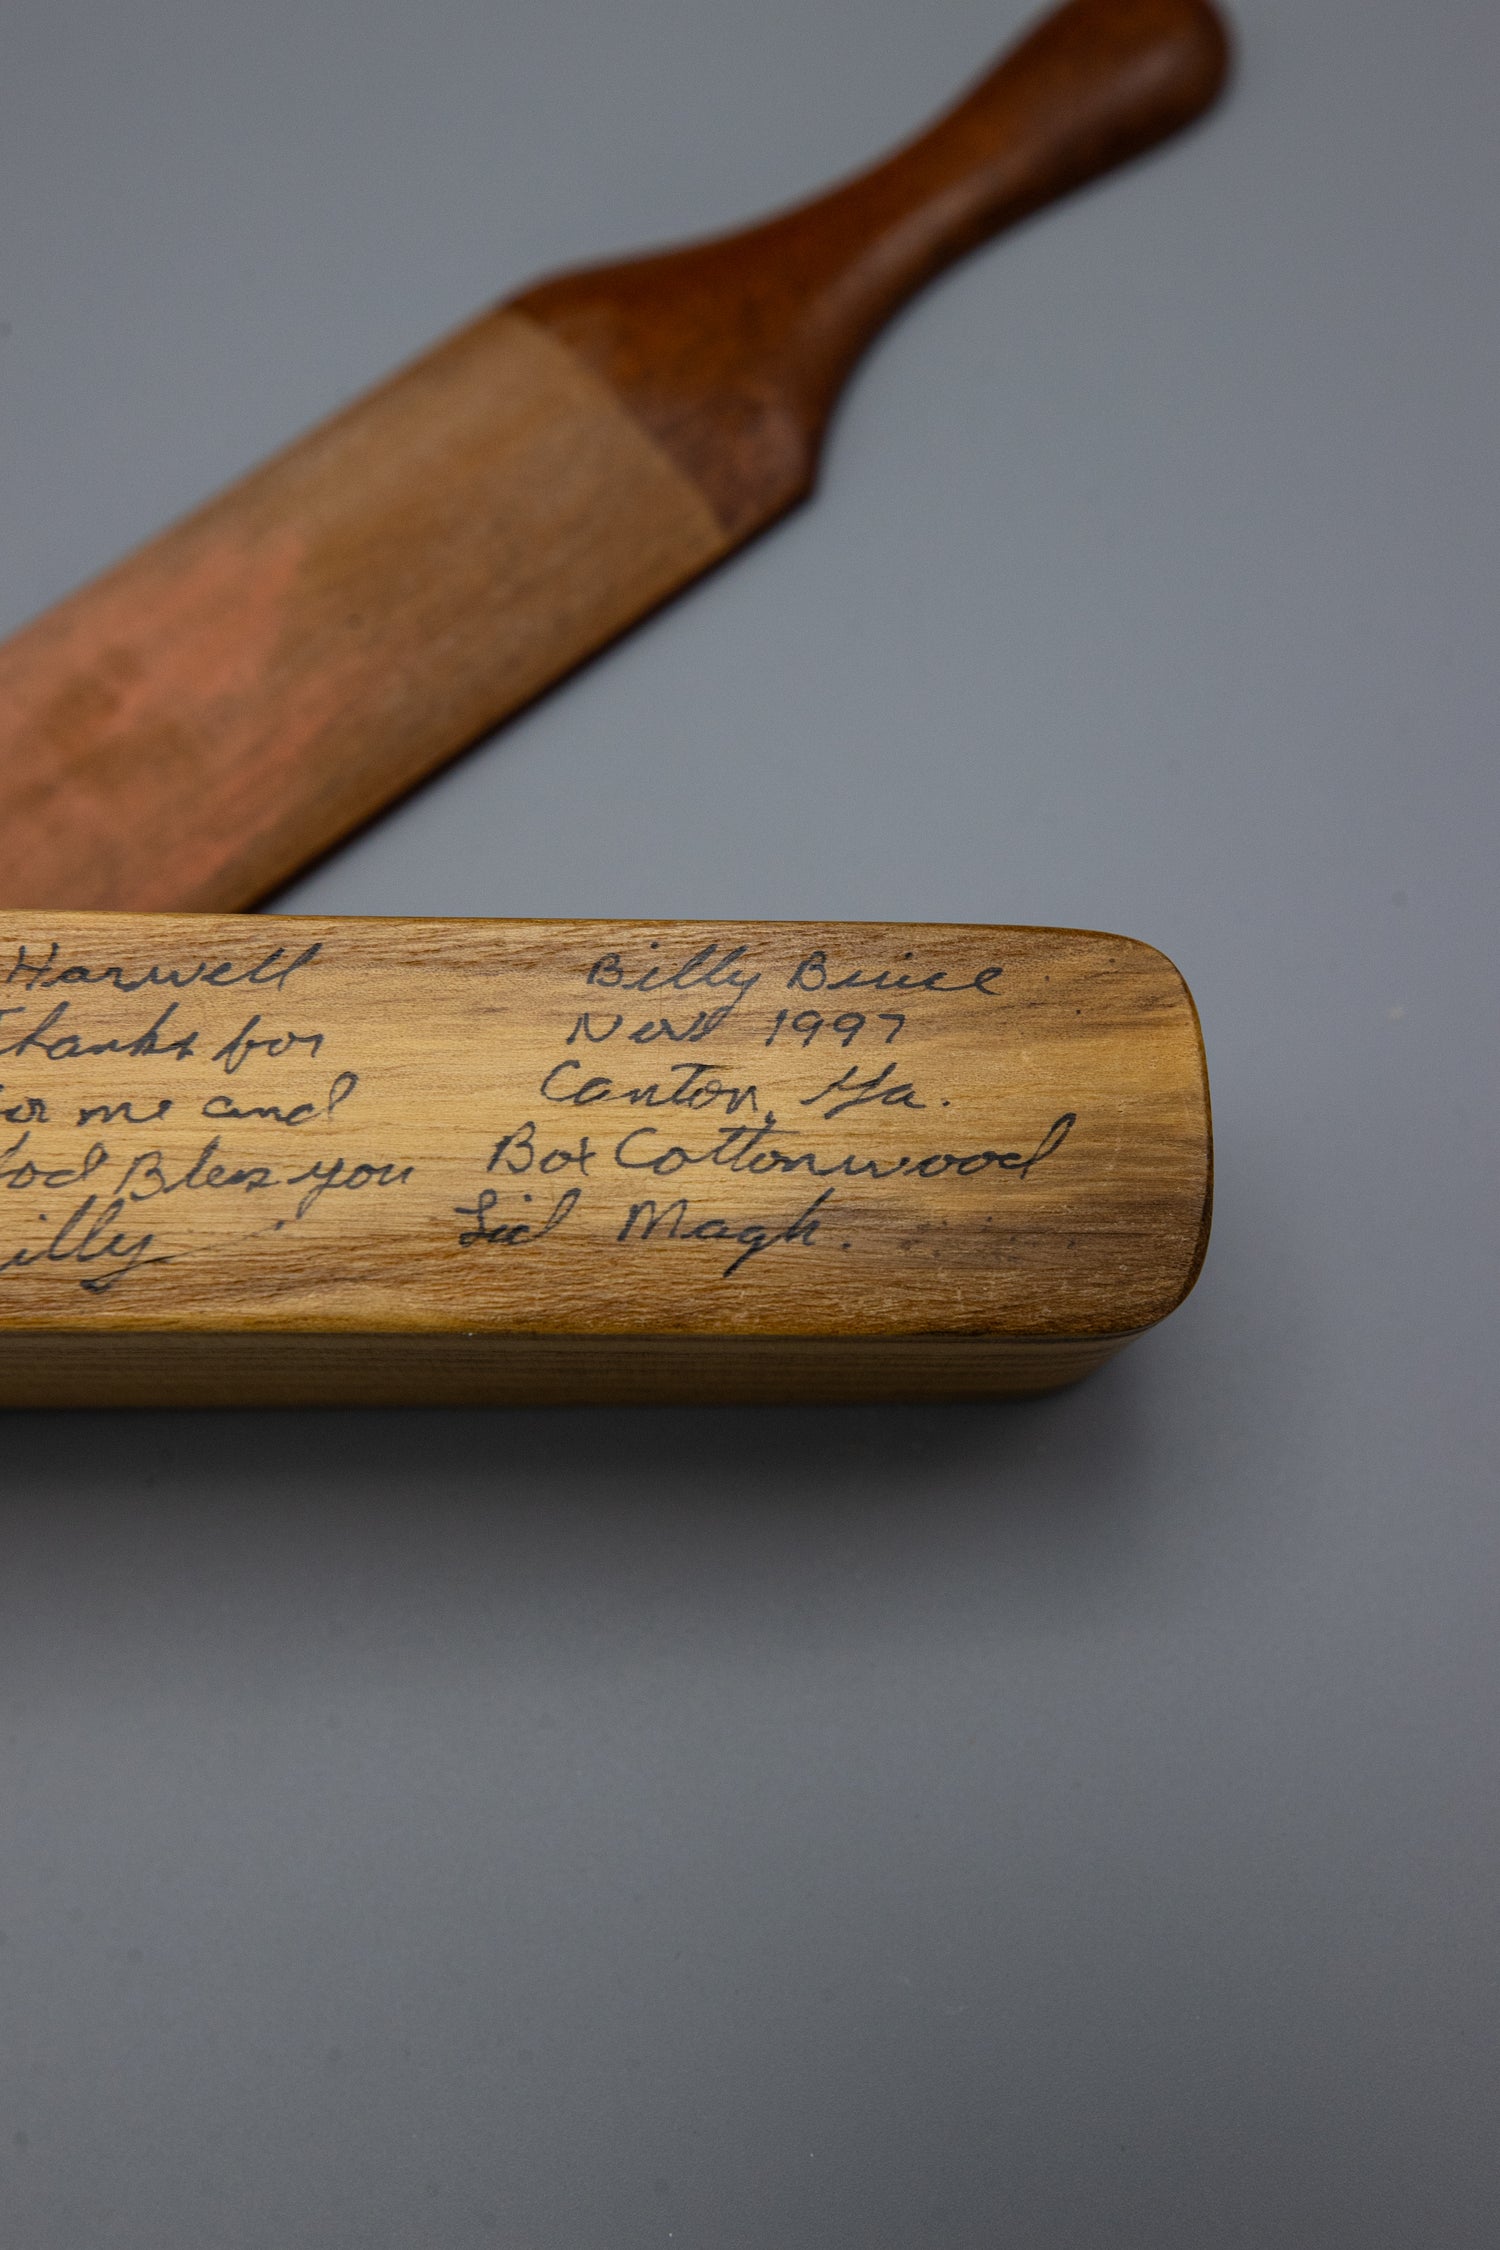 Harwell
Thanks for
for me and
God Bless you
Billy
Billy Bruce
Nov 1997
Canton, Ga.
Box Cottonwood
Lid Magh.